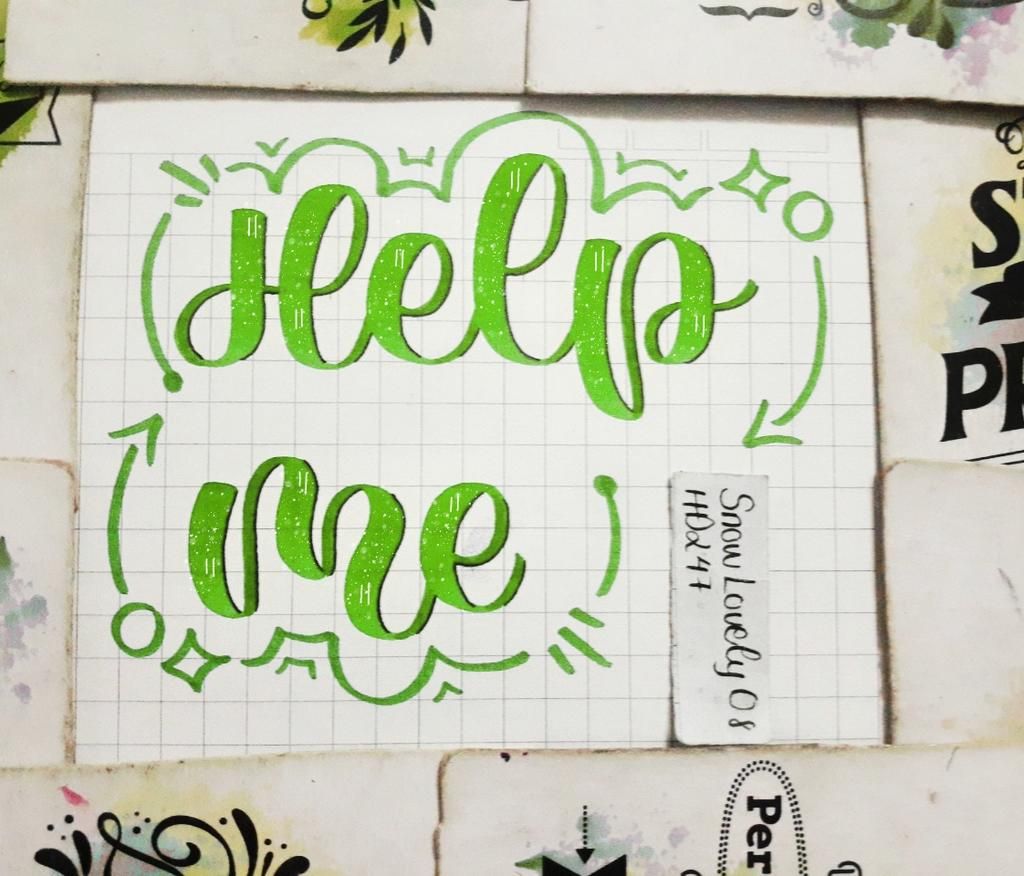 Help
me
SnowLovely08
HDd247
Per